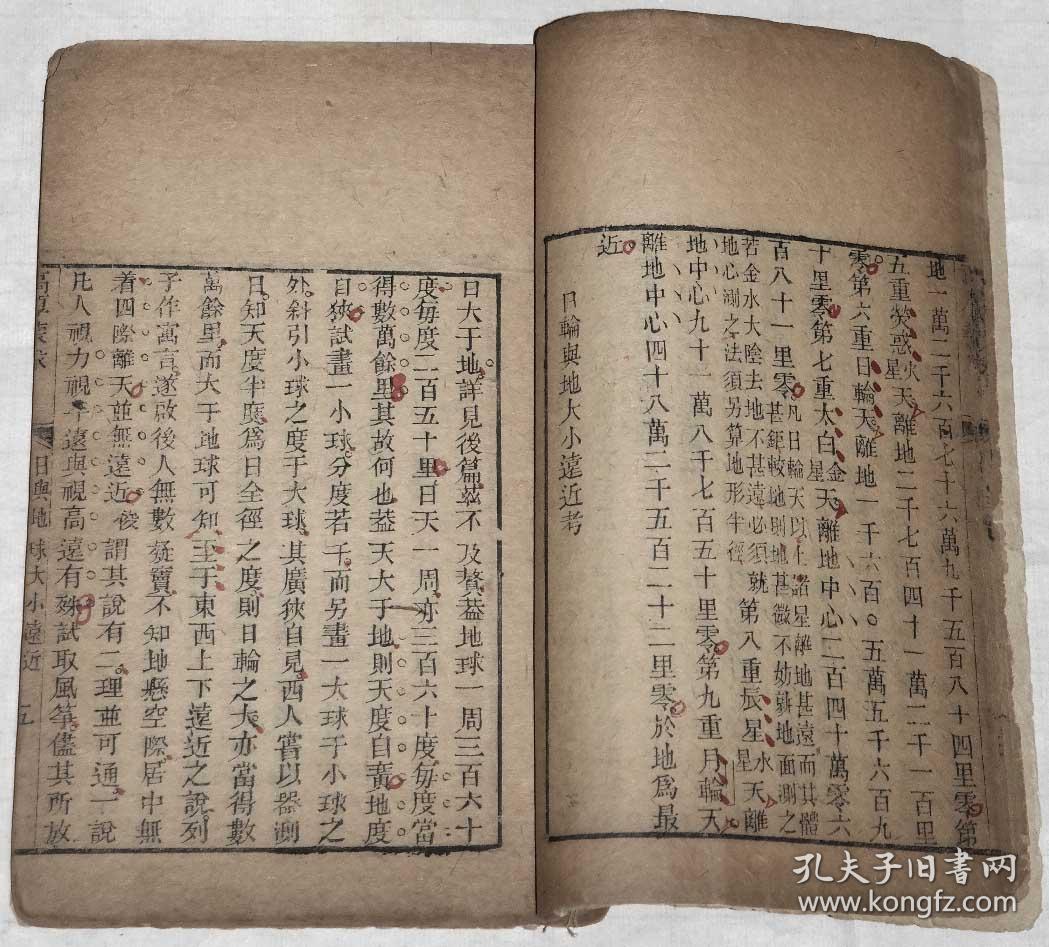 地一萬二千六百七十六萬九千五百八十四里零第
五重熒惑火星天離地二千七百四十一萬二千一百里
零第六重日輪天離地一千六百〇五萬五千六百九
十里零第七重太白金星天離地中心二百四十萬零六
百八十一里零凡日輪天以上諸星離地甚遠而其體
甚鉅較地則地甚微不妨斜地面測之
若金水大陰去地不甚遠必須就
地心測之法須另算地形半徑
第八重辰星水星天離
地中心九十一萬八千七百五十里零第九重月輪天
離地中心四十八萬二千五百二十二里零於地爲最
近
日輪與地大小遠近考
日大于地詳見後篇茲不及贅蓋地球一周三百六十
度每度二百五十里日天一周亦三百六十度每度當
得數萬餘里其故何也葢天大于地則天度自廣地度
自狹試畫一小球分度若干而另畫一大球于小球之
外斜引小球之度于大球其廣狹自見西人嘗以器測
日知天度半度爲日全徑之度則日輪之大亦當得數
萬餘里而大于地球可知至于東西上下遠近之說列
子作寓言遂啟後人無數疑竇不知地懸空際居中無
着四際離天並無遠近後謂其說有二理並可通一說
凡人視力視平遠與視高遠有殊試取風箏儘其所放
日與地球大小遠近
五
孔夫子旧书网
www.kongfz.com